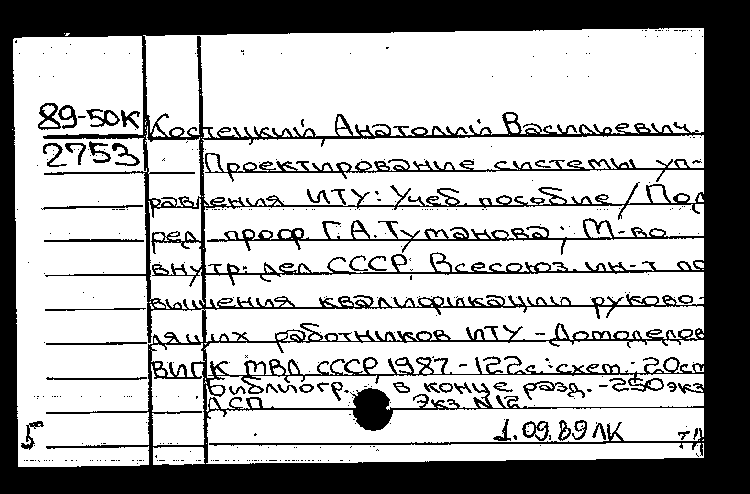 89-50К Костецкий, Анатолий Васильевич.
2753 Проектирование системы уп-
равления ИТУ: Учеб. пособие / Под
ред. проф. Г.А. Туманова; М-во
внутр. дел СССР, Всесоюз. ин-т по
вышения квалификации руково-
дящих работников ИТУ. - Домодедов
ВИПК МВД СССР, 1987. - 122с.: схем.; 20см
Библиогр. в конце разд. - 250экз
ДСП. Экз N12.
5 1.09.89 ЛК